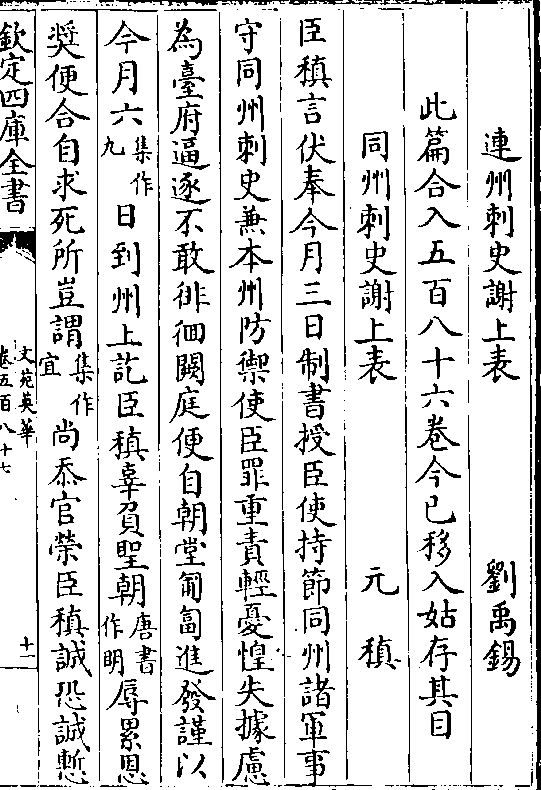 連州刺史謝上表　劉禹錫
此篇合入五百八十六卷今已移入姑存其目
同州刺史謝上表　元稹
臣稹言伏奉今月三日制書授臣使持節同州諸軍事
守同州刺史兼本州防禦使臣罪重責輕憂惶失據慮
為臺府逼逐不敢徘徊闕庭便自朝堂匍匐進發謹以
今月六集作九日到州上訖臣稹辜負聖朝唐書作明辱累恩
奬便合自求死所豈謂集作宜尚忝官榮臣稹誠恐誠慙
欽定四庫全書
文苑英華
卷五百八十七
十一